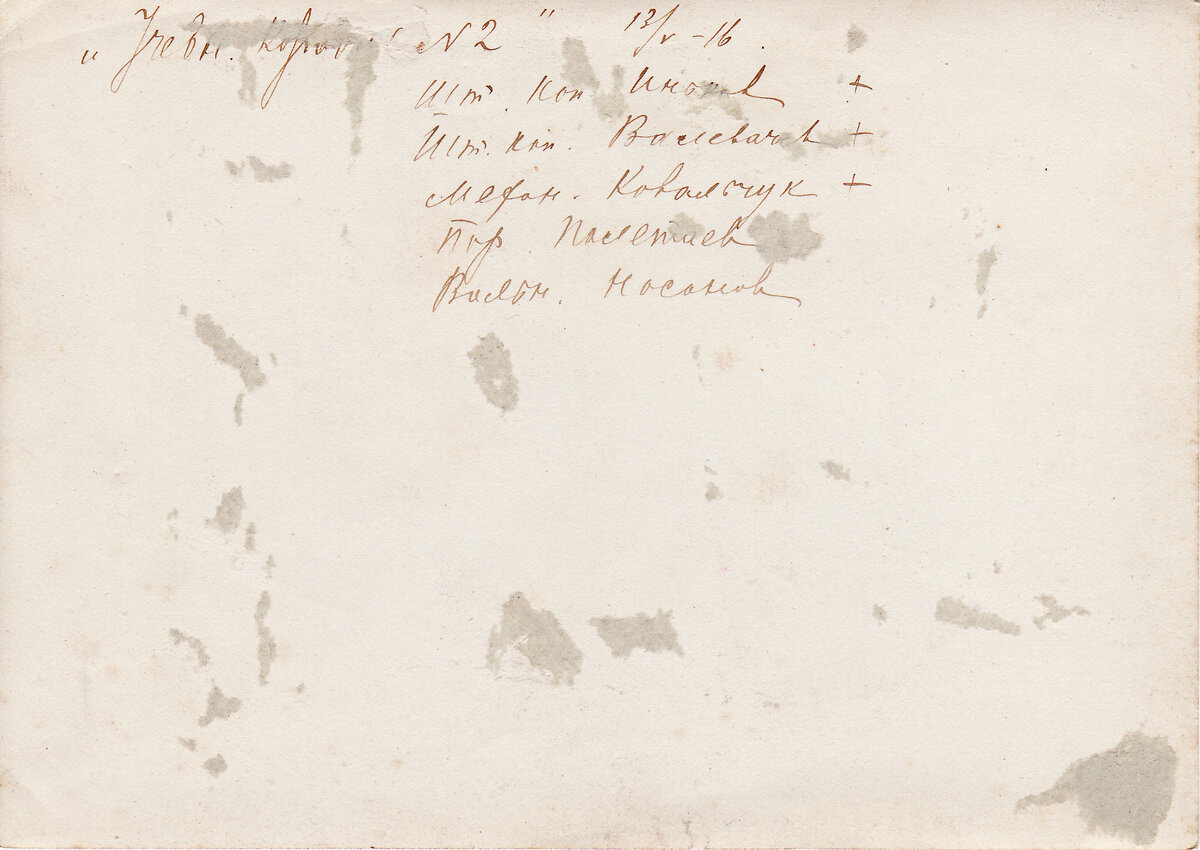 „ Учебн. Кораб. N 2 " 13/V - 16.
Шт. кап Иноков +
Шт. кап. Валевачев +
Механ. Ковальчук +
Пор Полетаев
Вольн. Насонов